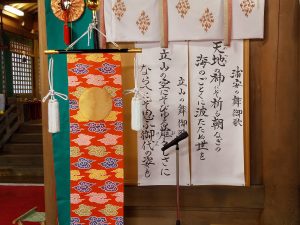 浦安の舞御歌
天地の神にぞ祈る朝なぎの
海のごとくに波たたぬ世を
立山の舞御歌
立山の空にそびゆる雄々しさに
ならへとぞ思ふ御代の姿も